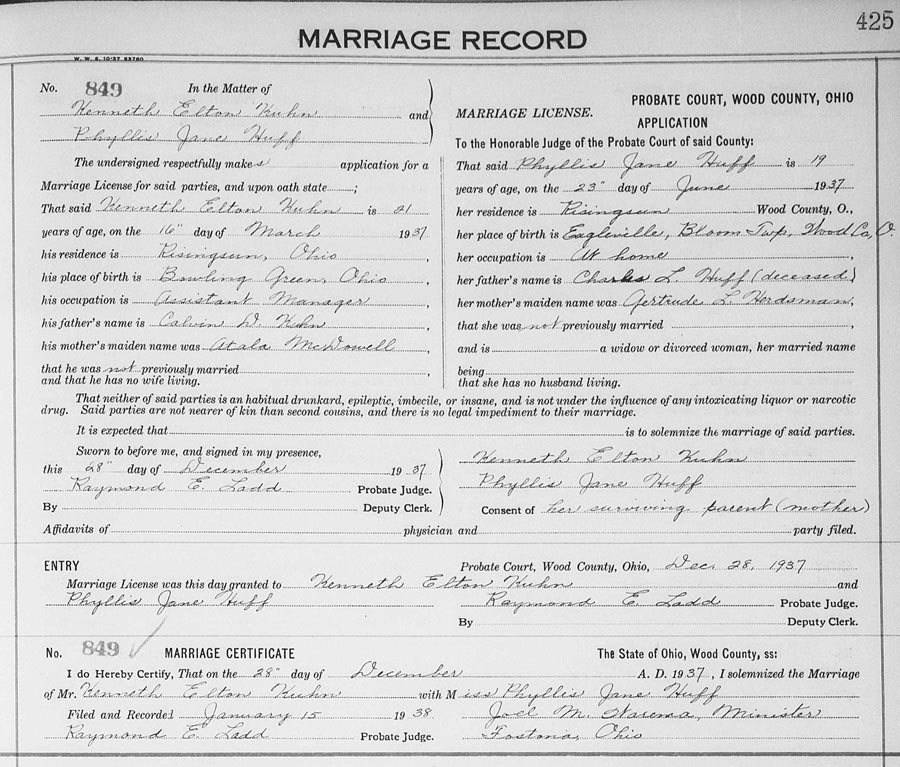 425
MARRIAGE RECORD
W. W. S. 10-37 83760
No. 849 In the Matter of
Kenneth Elton Kuhn and
Phyllis Jane Huff
The undersigned respectfully makes application for a
Marriage License for said parties, and upon oath state ;
That said Kenneth Elton Kuhn is 21
years of age, on the 16" day of March 1937
his residence is Risingsun, Ohio ,
his place of birth is Bowling Green, Ohio ,
his occupation is Assistant Manager ,
his father's name is Calvin D. Kuhn ,
his mother's maiden name was Atala McDowell ,
that he was not previously married ,
and that he has no wife living.
MARRIAGE LICENSE.
PROBATE COURT, WOOD COUNTY, OHIO
APPLICATION
To the Honorable Judge of the Probate Court of said County:
That said Phyllis Jane Huff is 19
years of age, on the 23" day of June 1937
her residence is Risingsun Wood County, O.,
her place of birth is Eagleville, Bloom Twp, Wood Co, O.
her occupation is At home ,
her father's name is Charles L. Huff (deceased)
her mother's maiden name was Gertrude L. Herdsman,
that she was not previously married ,
and is a widow or divorced woman, her married name
being
that she has no husband living.
That neither of said parties is an habitual drunkard, epileptic, imbecile, or insane, and is not under the influence of any intoxicating liquor or narcotic
drug. Said parties are not nearer of kin than second cousins, and there is no legal impediment to their marriage.
It is expected that is to solemnize the marriage of said parties.
Sworn to before me, and signed in my presence,
this 28" day of December 1937
Raymond E. Ladd Probate Judge.
By Deputy Clerk.
Kenneth Elton Kuhn
Phyllis Jane Huff
Consent of her surviving parent (mother)
Affidavits of physician and party filed.
ENTRY Probate Court, Wood County, Ohio, Dec. 28, 1937
Marriage License was this day granted to Kenneth Elton Kuhn and
Phyllis Jane Huff Raymond E. Ladd Probate Judge.
By Deputy Clerk.
No. 849 MARRIAGE CERTIFICATE The State of Ohio, Wood County, ss:
I do Hereby Certify, That on the 28" day of December A. D. 1937, I solemnized the Marriage
of Mr. Kenneth Elton Kuhn with Miss Phyllis Jane Huff
Filed and Recorded January 15 1938 Joel M. Warema, Minister
Raymond E. Ladd Probate Judge. Fostoria, Ohio